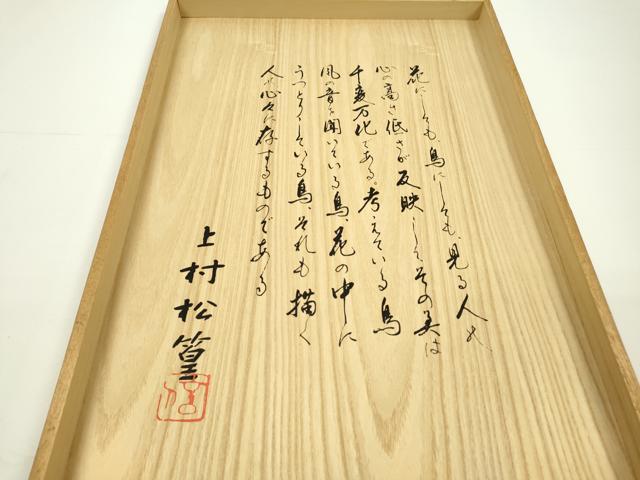 花にしても、鳥にしても、見る人の、
心の高さ低さが反映してその美は
千変万化である。考えている鳥
風の音を聞いている鳥、花の中に
うっとりしている鳥、それも描く
人の心々に存するものである
上村松篁